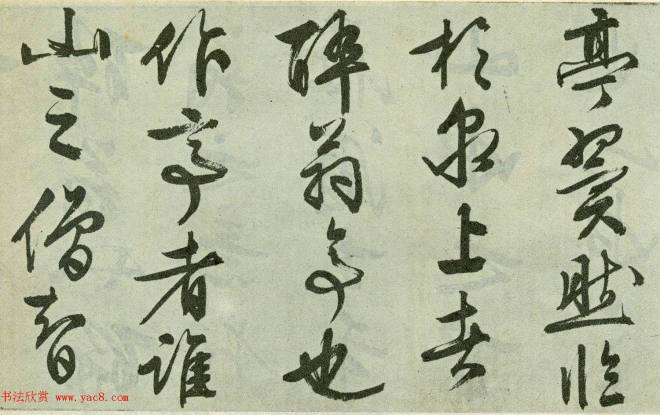 亭翼然临
於泉上者
醉翁亭也
作亭者谁
山之僧智
书法欣赏 www.yac8.com